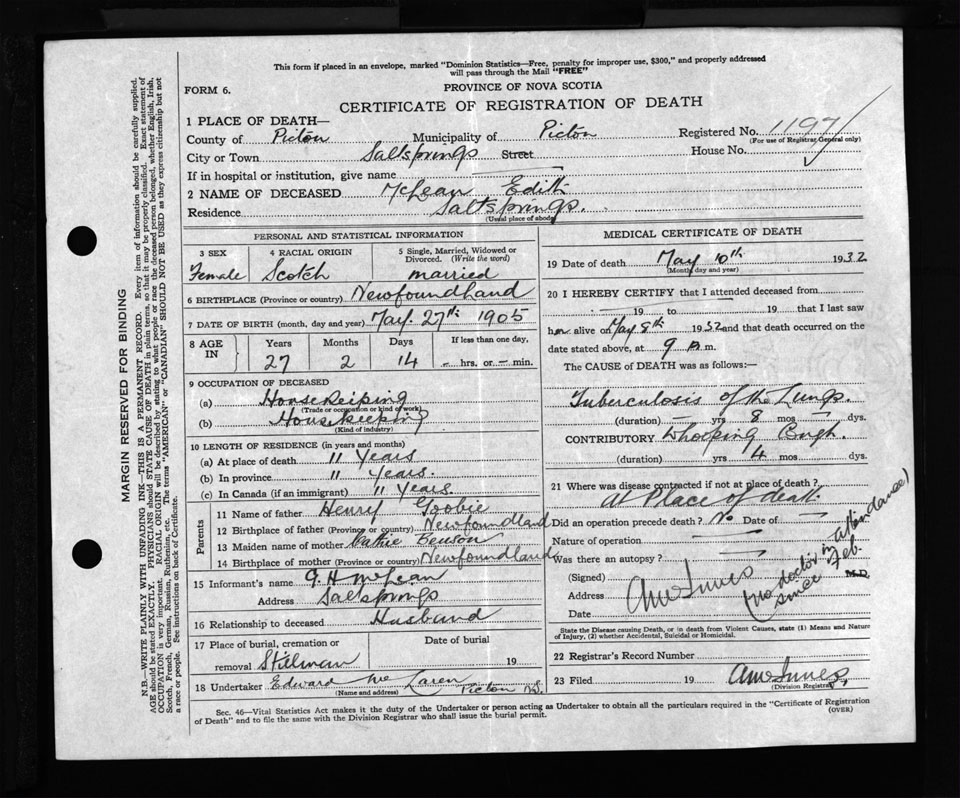 This form if placed in an envelope, marked "Dominion Statistics—Free, penalty for improper use, $300," and properly addressed
will pass through the Mail "FREE"
FORM 6.
PROVINCE OF NOVA SCOTIA
CERTIFICATE OF REGISTRATION OF DEATH
1 PLACE OF DEATH—
County of Pictou Municipality of Pictou Registered No. 1197
(For use of Registrar General only)
City or Town Saltsprings Street House No.
If in hospital or institution, give name
2 NAME OF DECEASED McLean Edith
Residence Saltsprings.
(Usual place of abode)
PERSONAL AND STATISTICAL INFORMATION
3 SEX Female
4 RACIAL ORIGIN Scotch
5 Single, Married, Widowed or Divorced. (Write the word) married
6 BIRTHPLACE (Province or country) Newfoundland
7 DATE OF BIRTH (month, day and year) 27th 1905
8 AGE IN Years 27 Months 2 Days 14 If less than one day, – hrs. or – min.
9 OCCUPATION OF DECEASED
(a) Housekeiping
(Trade or occupation or kind of work)
(b) Housekeeping
(Kind of industry)
10 LENGTH OF RESIDENCE (in years and months)
(a) At place of death 11 Years
(b) In province 11 Years.
(c) In Canada (if an immigrant) 11 Years.
Parents
11 Name of father Henry Goobie
12 Birthplace of father (Province or country) Newfoundland
13 Maiden name of mother Benson
14 Birthplace of mother (Province or country) Newfoundland
15 Informant's name G H McLean
Address Saltsprings
16 Relationship to deceased Husband
17 Place of burial, cremation or removal Stillman Date of burial 19
18 Undertaker Edward McLaren Pictou N.S.
(Name and address)
MEDICAL CERTIFICATE OF DEATH
19 Date of death May 10th 1932
(Month, day and year)
20 I HEREBY CERTIFY that I attended deceased from
19 to 19 that I last saw
her alive on May 8th 1932 and that death occurred on the
date stated above, at 9 m.
The CAUSE of DEATH was as follows:—
Tuberculosis of the Lungs.
(duration) – yrs 8 mos – dys.
CONTRIBUTORY Whooping Cough.
(duration) yrs 4 mos dys.
21 Where was disease contracted if not at place of death?
At Place of death
Did an operation precede death? No Date of
Nature of operation
Was there an autopsy?
(Signed) M.D.
Address
Date
(No doctor in attendance)
since Feb.
State the Disease causing Death, or in death from Violent Causes, state (1) Means and Nature
of Injury, (2) whether Accidental, Suicidal or Homicidal.
22 Registrar's Record Number
23 Filed 19
(Division Registrar)
Sec. 46—Vital Statistics Act makes it the duty of the Undertaker or person acting as Undertaker to obtain all the particulars required in the "Certificate of Registration
of Death" and to file the same with the Division Registrar who shall issue the burial permit.
(OVER)
MARGIN RESERVED FOR BINDING
N.B.—WRITE PLAINLY WITH UNFADING INK—THIS IS A PERMANENT RECORD. Every item of information should be carefully supplied.
AGE should be stated EXACTLY. PHYSICIANS should STATE CAUSE OF DEATH in plain terms, so that it may be properly classified. Exact statement of
OCCUPATION is very important. RACIAL ORIGIN will be described by stating to what people or race the deceased person belonged, whether English, Irish,
Scotch, French, German, Russian, Ruthenian, etc. The terms "AMERICAN" or "CANADIAN" SHOULD NOT BE USED as they express citizenship but not
a race or people. See instructions on back of Certificate.